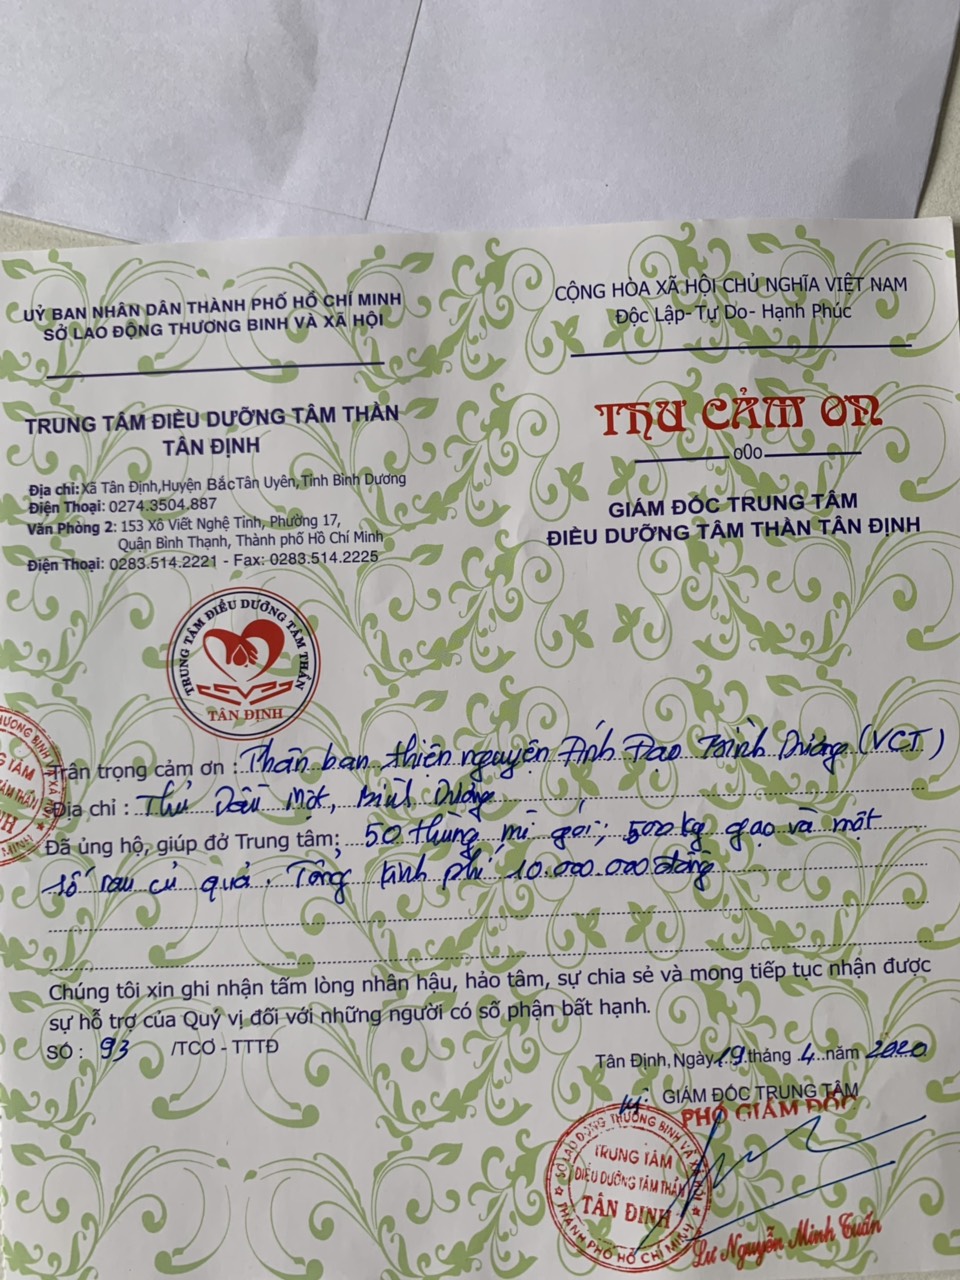 UỶ BAN NHÂN DÂN THÀNH PHỐ HỒ CHÍ MINH
SỞ LAO ĐỘNG THƯƠNG BINH VÀ XÃ HỘI
CỘNG HÒA XÃ HỘI CHỦ NGHĨA VIỆT NAM
Độc Lập- Tự Do- Hạnh Phúc
TRUNG TÂM ĐIỀU DƯỠNG TÂM THẦN
TÂN ĐỊNH
Địa chỉ: Xã Tân Định,Huyện BắcTân Uyên,Tỉnh Bình Dương
Điện Thoại: 0274.3504.887
Văn Phòng 2: 153 Xô Viết Nghệ Tĩnh, Phường 17,
Quận Bình Thạnh, Thành phố Hồ Chí Minh
Điện Thoại: 0283.514.2221 - Fax: 0283.514.2225
THƯ CẢM ƠN
o0o
GIÁM ĐỐC TRUNG TÂM
ĐIỀU DƯỠNG TÂM THẦN TÂN ĐỊNH
TRUNG TÂM ĐIỀU DƯỠNG TÂM THẦN
TÂN ĐỊNH
Trân trọng cảm ơn : Thân ban thiện nguyện Ánh Đạo Bình Dương (VCT)
Địa chỉ : Thủ Dầu Một, Bình Dương
Đã ủng hộ, giúp đở Trung tâm: 50 thùng mì gói; 500kg gạo và một
số rau củ quả. Tổng kinh phí 10.000.000 đồng
Chúng tôi xin ghi nhận tấm lòng nhân hậu, hảo tâm, sự chia sẻ và mong tiếp tục nhận được
sự hỗ trợ của Quý vị đối với những người có số phận bất hạnh.
SỐ : 93 /TCƠ - TTTĐ
Tân Định, Ngày 19 tháng 4 năm 2020
GIÁM ĐỐC TRUNG TÂM
PHÓ GIÁM ĐỐC
SỞ LAO ĐỘNG THƯƠNG BINH VÀ XÃ HỘI
TRUNG TÂM
ĐIỀU DƯỠNG TÂM THẦN
TÂN ĐỊNH
THÀNH PHỐ HỒ CHÍ MINH
Lư Nguyễn Minh Tuấn